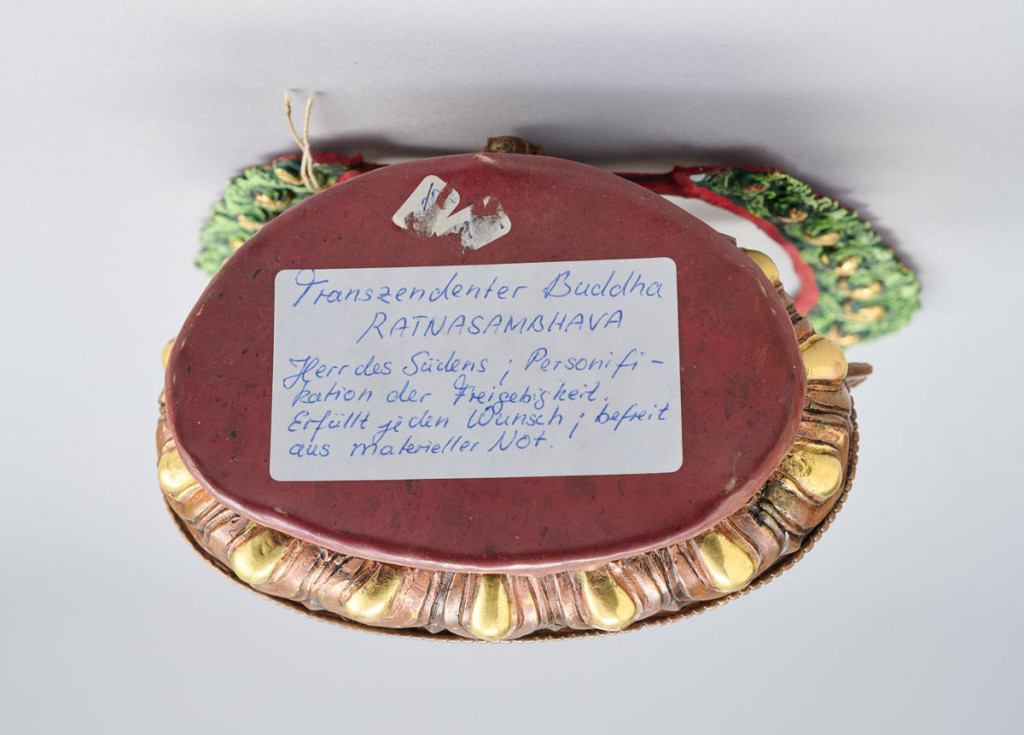 Transzendenter Buddha
RATNASAMBHAVA
Herr des Südens ; Personifi-
kation der Freigebigkeit.
Erfüllt jeden Wunsch ; befreit
aus materieller Not.